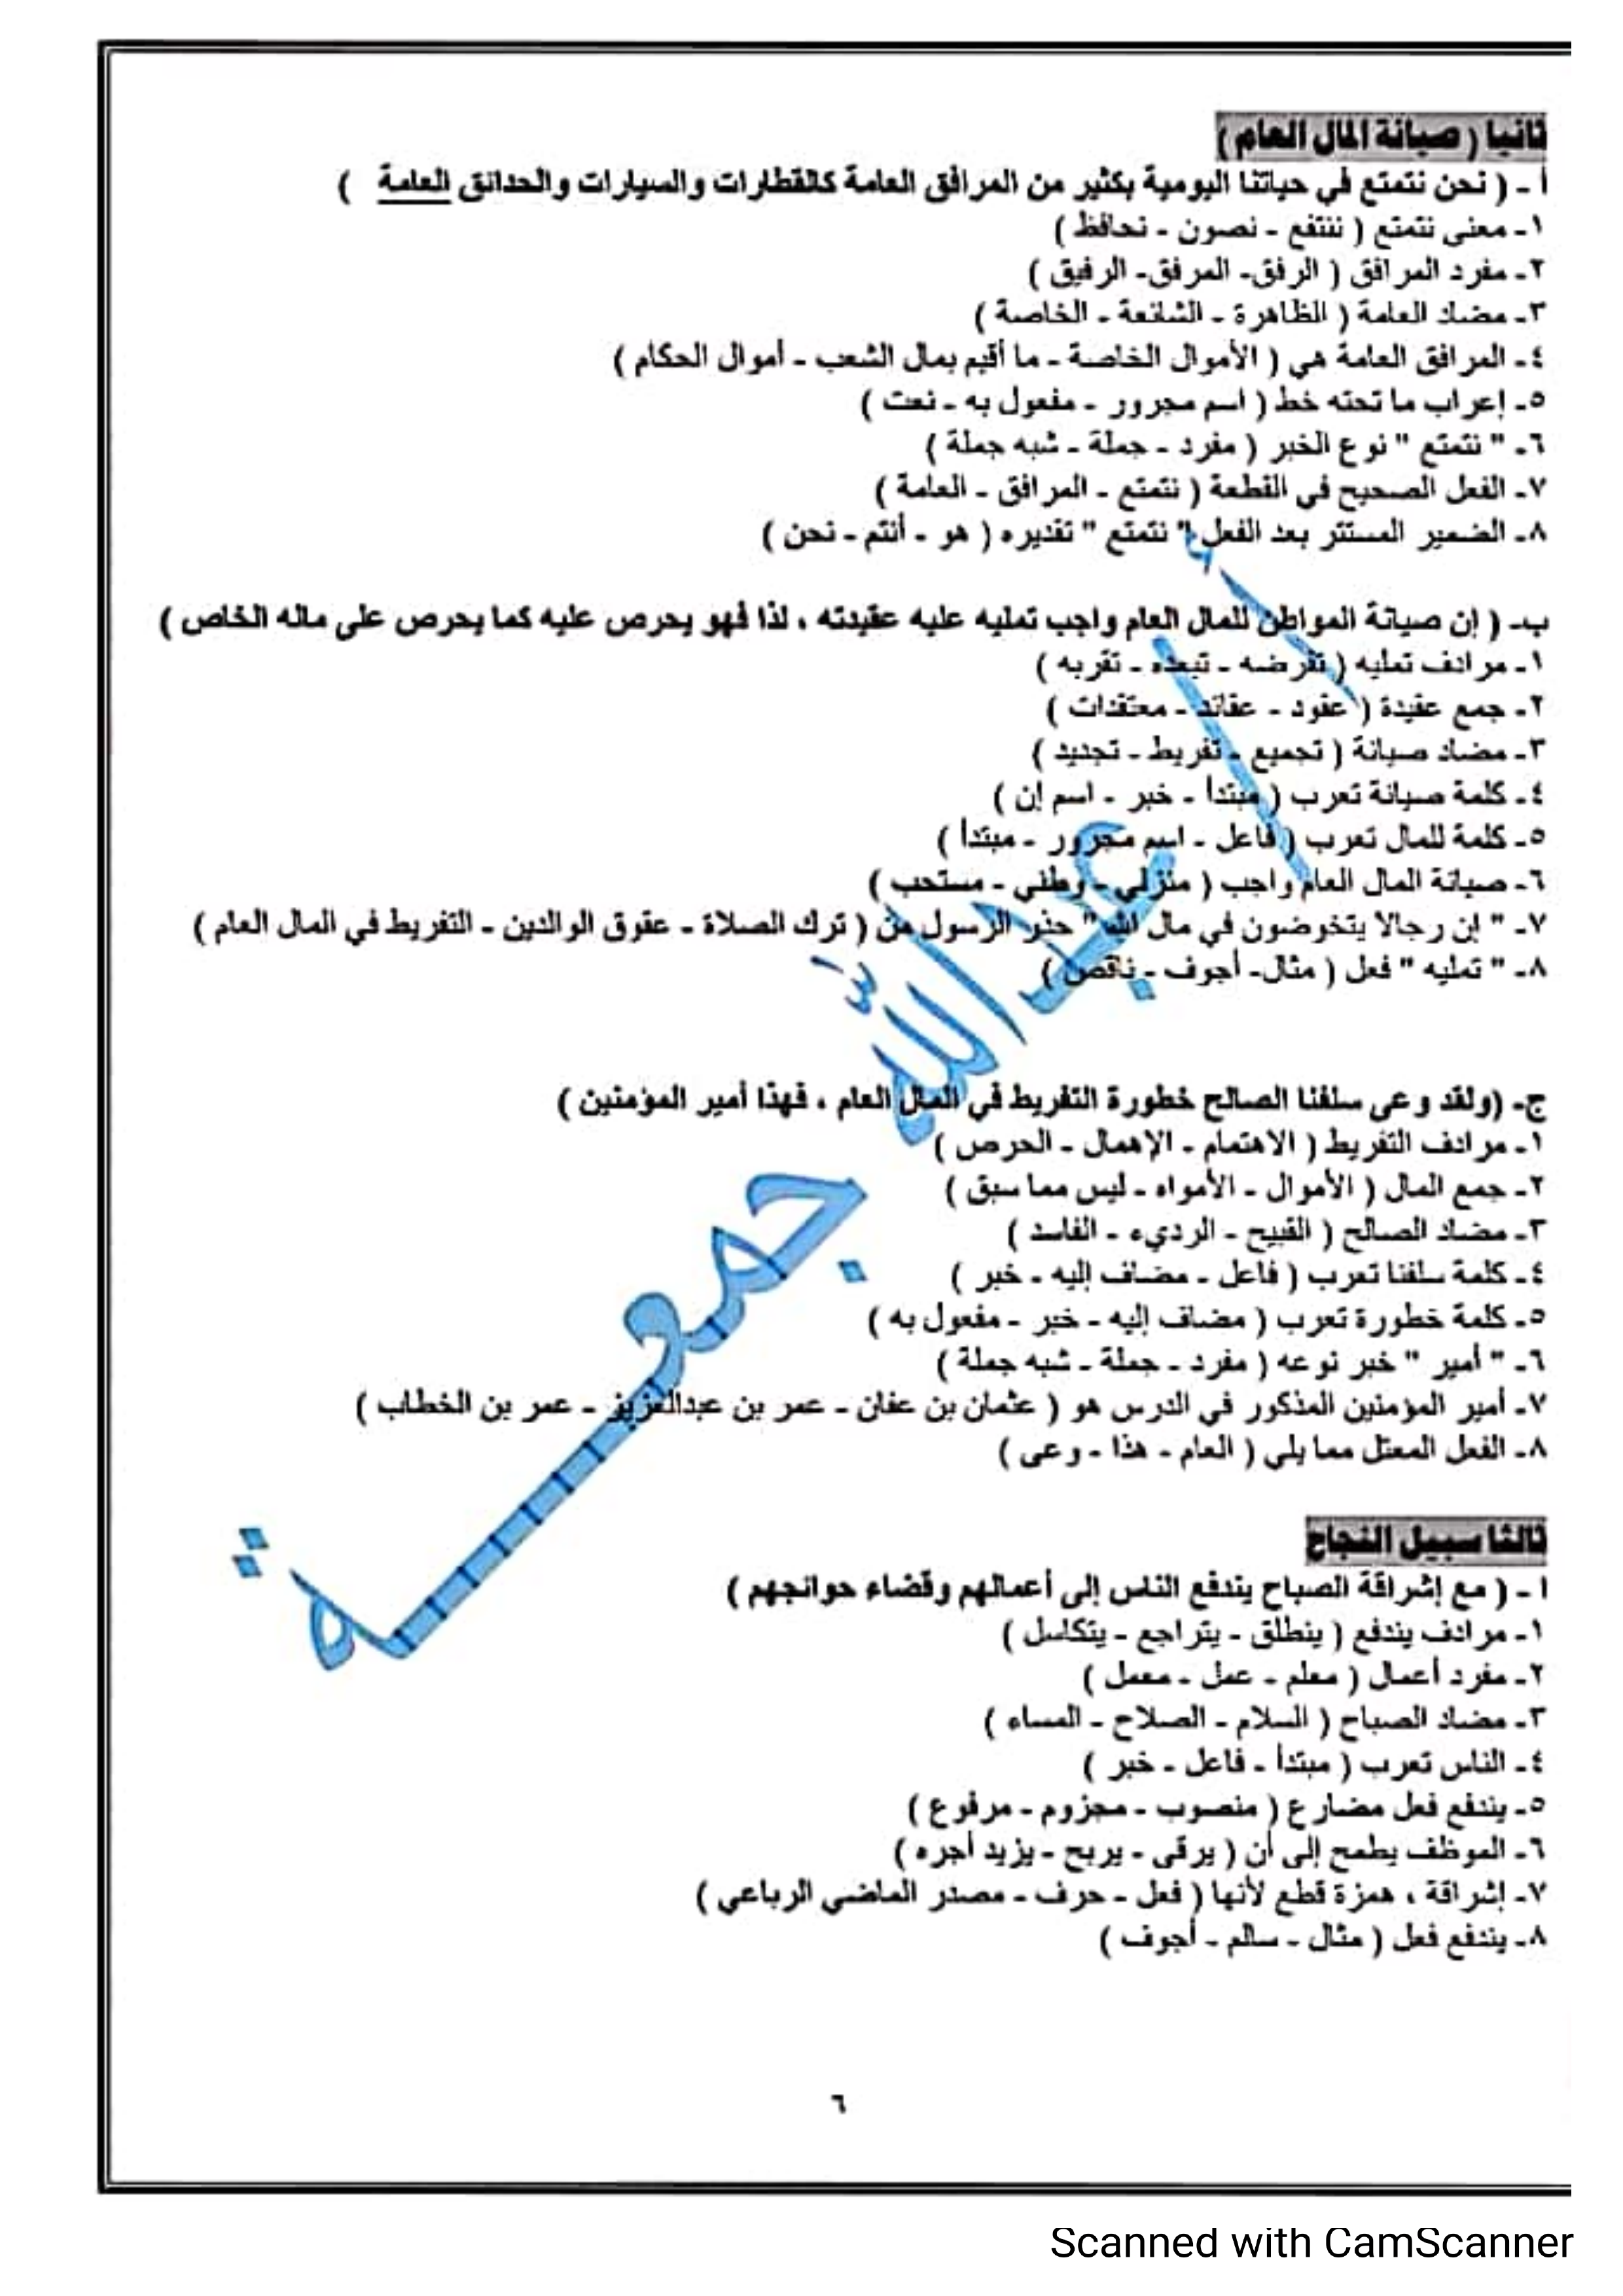 ثانيا ( صيانة المال العام )
أ - ( نحن نتمتع في حياتنا اليومية بكثير من المرافق العامة كالقطارات والسيارات والحدائق العامة )
١- معنى نتمتع ( ننتفع - نصون - نحافظ )
٢- مفرد المرافق ( الرفق- المرفق- الرفيق )
٣- مضاد العامة ( الظاهرة - الشائعة - الخاصة )
٤- المرافق العامة هي ( الأموال الخاصة - ما أقيم بمال الشعب - أموال الحكام )
٥- إعراب ما تحته خط ( اسم مجرور - مفعول به - نعت )
٦- " نتمتع " نوع الخبر ( مفرد - جملة - شبه جملة )
٧- الفعل الصحيح في القطعة ( نتمتع - المرافق - العامة )
٨- الضمير المستتر بعد الفعل " نتمتع " تقديره ( هو - أنتم - نحن )
ب- ( إن صيانة المواطن للمال العام واجب تمليه عليه عقيدته ، لذا فهو يحرص عليه كما يحرص على ماله الخاص )
١- مرادف تمليه ( تفرضه - تبعده - تقربه )
٢- جمع عقيدة ( عقود - عقائد - معتقدات )
٣- مضاد صيانة ( تجميع - تفريط - تجديد )
٤- كلمة صيانة تعرب ( مبتدأ - خبر - اسم إن )
٥- كلمة للمال تعرب ( فاعل - اسم مجرور - مبتدأ )
٦- صيانة المال العام واجب ( منزلي - وطني - مستحب )
٧- " إن رجالا يتخوضون في مال الله " حذر الرسول من ( ترك الصلاة - عقوق الوالدين - التفريط في المال العام )
٨- " تمليه " فعل ( مثال- أجوف - ناقص )
ج- (ولقد وعى سلفنا الصالح خطورة التفريط في المال العام ، فهذا أمير المؤمنين )
١- مرادف التفريط ( الاهتمام - الإهمال - الحرص )
٢- جمع المال ( الأموال - الأمواه - ليس مما سبق )
٣- مضاد الصالح ( القبيح - الرديء - الفاسد )
٤- كلمة سلفنا تعرب ( فاعل - مضاف إليه - خبر )
٥- كلمة خطورة تعرب ( مضاف إليه - خبر - مفعول به )
٦- " أمير " خبر نوعه ( مفرد - جملة - شبه جملة )
٧- أمير المؤمنين المذكور في الدرس هو ( عثمان بن عفان - عمر بن عبدالعزيز - عمر بن الخطاب )
٨- الفعل المعتل مما يلي ( العام - هذا - وعى )
ثالثا سبيل النجاح
ا - ( مع إشراقة الصباح يندفع الناس إلى أعمالهم وقضاء حوائجهم )
١- مرادف يندفع ( ينطلق - يتراجع - يتكاسل )
٢- مفرد أعمال ( معلم - عمل - معمل )
٣- مضاد الصباح ( السلام - الصلاح - المساء )
٤- الناس تعرب ( مبتدأ - فاعل - خبر )
٥- يندفع فعل مضارع ( منصوب - مجزوم - مرفوع )
٦- الموظف يطمح إلى أن ( يرقى - يربح - يزيد أجره )
٧- إشراقة ، همزة قطع لأنها ( فعل - حرف - مصدر الماضي الرباعي )
٨- يندفع فعل ( مثال - سالم - أجوف )
أ / عبدالله جمعة
٦
Scanned with CamScanner